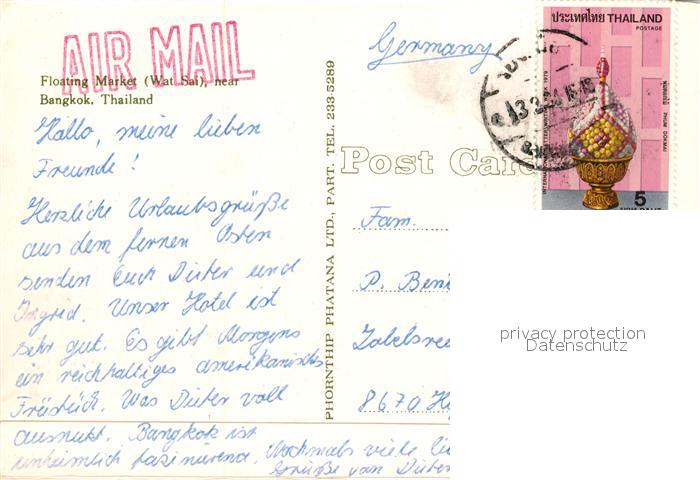 AIR MAIL
Floating Market (Wat Sai), near
Bangkok, Thailand
Hallo, meine lieben
Freunde!
Herzliche Urlaubsgrüße
aus dem fernen Osten
senden Euch Dieter und
Ingrid. Unser Hotel ist
sehr gut. Es gibt Morgens
ein reichhaltiges amerikanisches
Früstück. Was Dieter voll
ausnutzt. Bangkok ist
unheimlich faszinierend. Nochmals viele li
Grüße von Dieter
PHORNTHIP PHATANA LTD., PART. TEL. 233-5289
Germany
Post Car
Fam.
P. Beni
Zabelsree
8670 H
ประเทศไทย THAILAND
POSTAGE
พุ่มดอกไม้ PHUM DOKMAI
5
privacy protection
Datenschutz